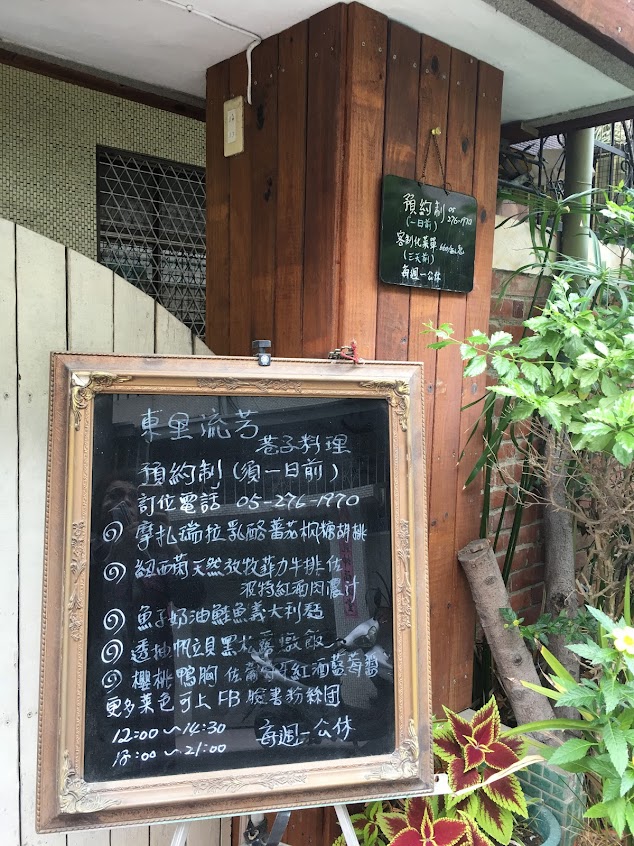 預約制 05
(一日前) 276-1970
客制化菜單
(三天前)
每週一公休
東里流芳
巷子料理
預約制(須一日前)
訂位電話 05-276-1970
摩扎瑞拉乳酪蕃茄楓糖胡桃
紐西蘭天然放牧菲力牛排佐
波特紅酒肉濃汁
魚子奶油鮭魚義大利麵
透抽帆立貝黑松露燉飯
櫻桃鴨胸佐葡萄牙紅酒藍莓醬
更多菜色可上FB臉書粉絲團
12:00~14:30
:00~21:00
每週一公休